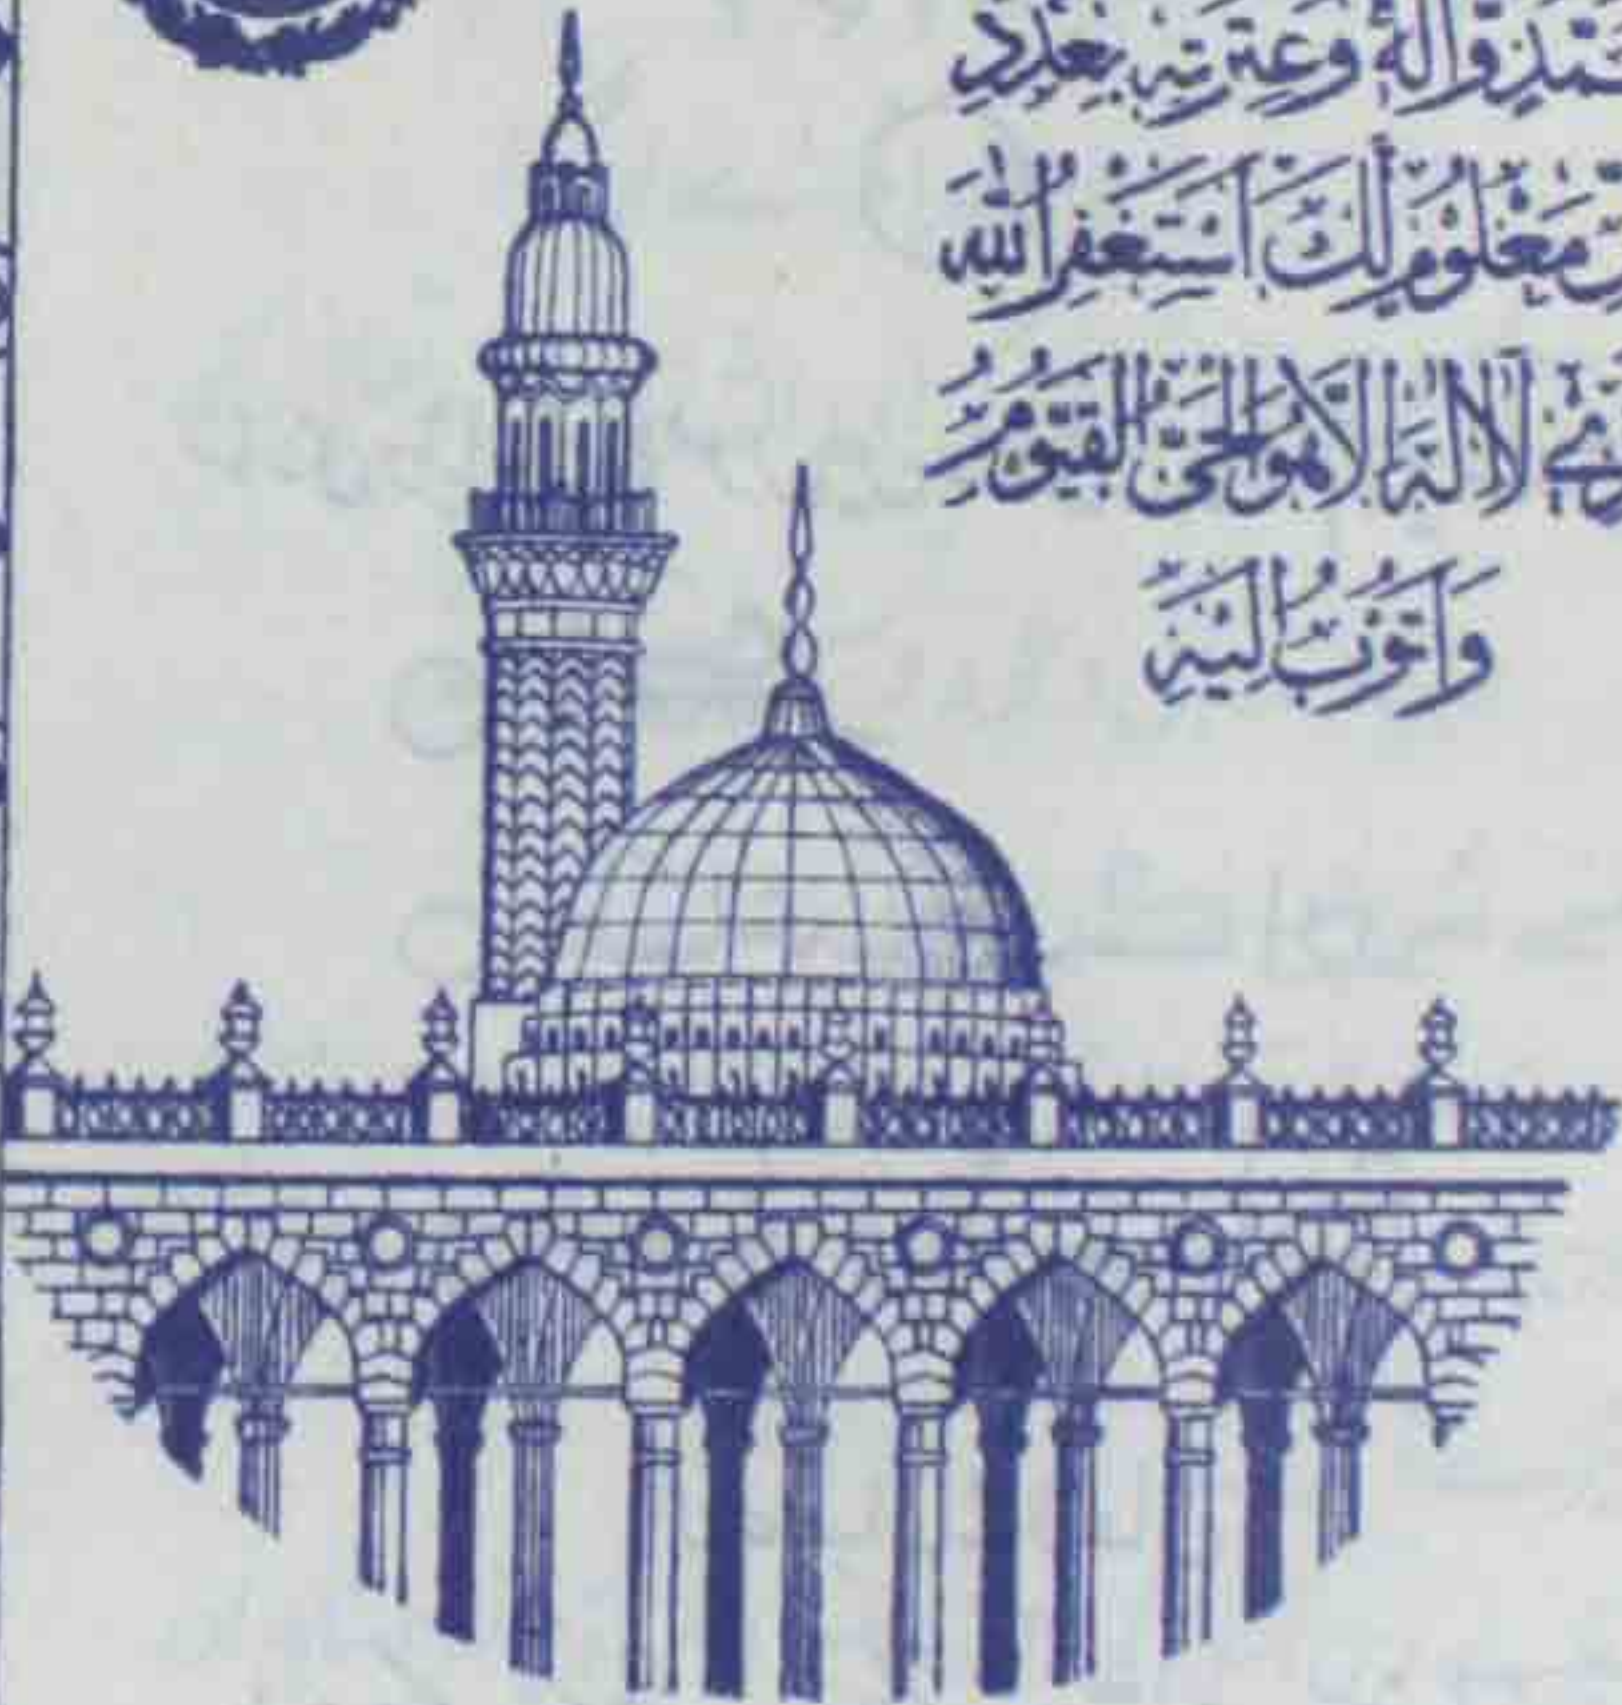 وَاٰلِهٖ وَعِتْرَتِهٖ بِعَدَدِ
مَعْلُوْمٍ لَّكَ اَسْتَغْفِرُ اللّٰهَ
لَاۤ اِلٰهَ اِلَّا هُوَ الْحَيُّ الْقَيُّوْمُ
وَاَتُوْبُ اِلَيْهِ